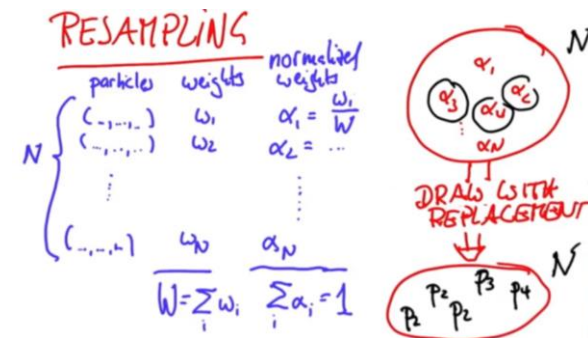 RESAMPLING
particles weights normalized weights
(-,-,-) ω₁ α₁ = ω₁/W
(-,-,-) ω₂ α₂ = ...
N
(-,-,-) ω_N α_N
W = Σ_i ω_i Σ_i α_i = 1
N
α₁
α₃ α₄ α₂
α_N
DRAW WITH
REPLACEMENT
N
p₂ p₂ p₂ p₃ p₄